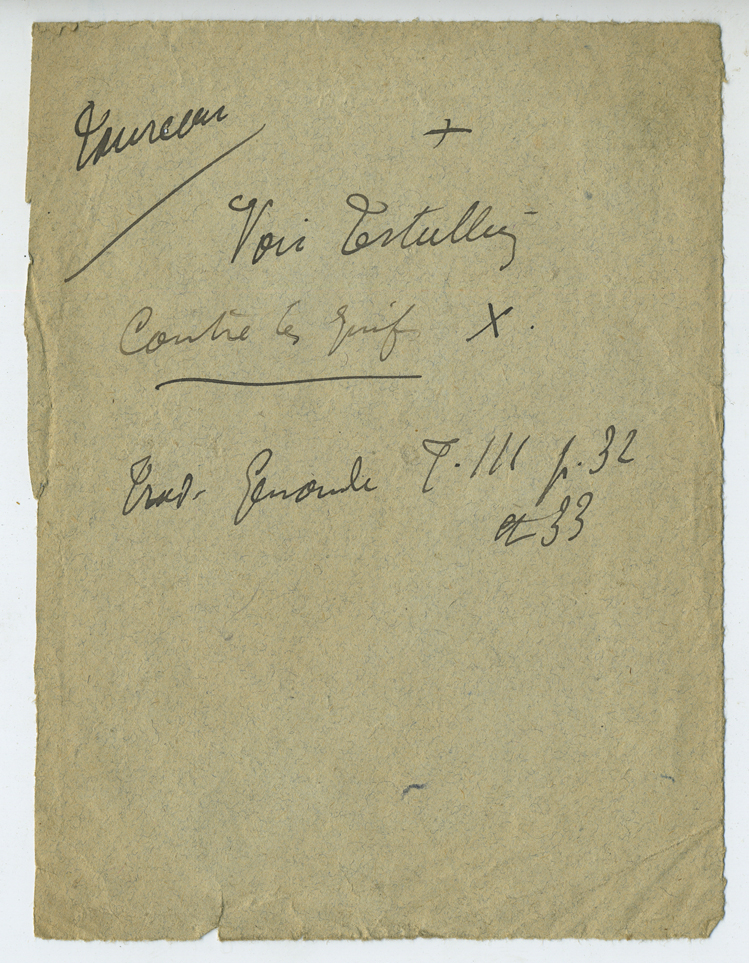 Taureau
+
Voir Tertullien
Contre les Juifs X.
Trad. Genoude T. III p. 32
et 33